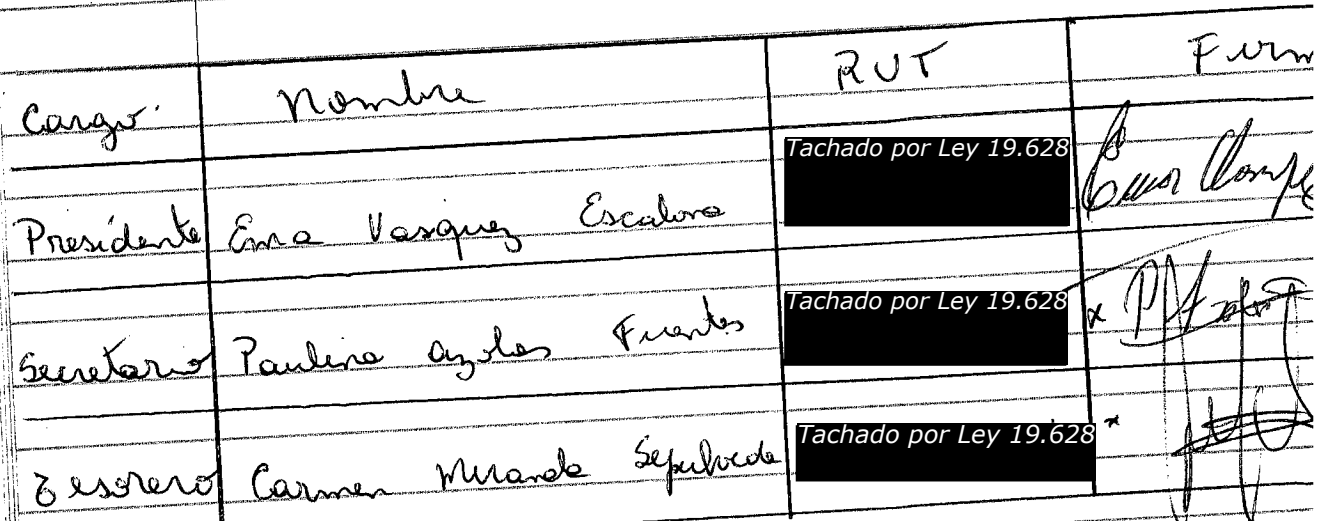 Cargo Nombre RUT Firm
Presidente Ema Vasquez Escalona Tachado por Ley 19.628
Secretario Paulina Azolas Fuentes Tachado por Ley 19.628 x
Tesorero Carmen Miranda Sepulveda Tachado por Ley 19.628 x